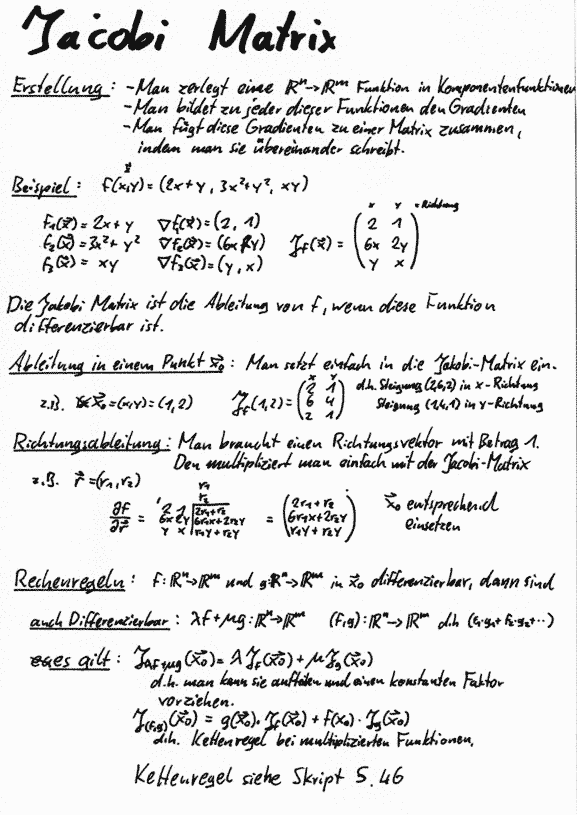 Jacobi Matrix
Erstellung: -Man zerlegt eine ℝⁿ→ℝᵐ Funktion in Komponentenfunktionen
-Man bildet zu jeder dieser Funktionen den Gradienten
-Man fügt diese Gradienten zu einer Matrix zusammen,
indem man sie übereinander schreibt.
Beispiel: f(x,y)=(2x+y, 3x²+y², xy)
x y =Richtung
f₁(x⃗)=2x+y ∇f₁(x⃗)=(2, 1) (2 1)
f₂(x⃗)=3x²+y² ∇f₂(x⃗)=(6x 2y) J_f(x⃗)= (6x 2y)
f₃(x⃗)= xy ∇f₃(x⃗)=(y, x) (y x)
Die Jakobi Matrix ist die Ableitung von f, wenn diese Funktion
differenzierbar ist.
Ableitung in einem Punkt x⃗₀: Man setzt einfach in die Jakobi-Matrix ein.
x y
(2 1) d.h. Steigung (2,6,2) in x-Richtung
z.B. x⃗₀=(x,y)=(1,2) J_f(1,2)= (6 4)
(2 1) Steigung (1,4,1) in y-Richtung
Richtungsableitung: Man braucht einen Richtungsvektor mit Betrag 1.
Den multipliziert man einfach mit der Jacobi-Matrix
z.B. r⃗=(r₁,r₂) r₁
r₂
2 1 2r₁+r₂ (2r₁+r₂) x⃗₀ entsprechend
∂f/∂r⃗ = 6x 2y 6r₁x+2r₂y = (6r₁x+2r₂y) einsetzen
y x r₁y+r₂x (r₁y+r₂y)
Rechenregeln: f:ℝⁿ→ℝᵐ und g:ℝⁿ→ℝᵐ in x⃗₀ differenzierbar, dann sind
auch Differenzierbar: λf+μg:ℝⁿ→ℝᵐ (f,g):ℝⁿ→ℝᵐ d.h (f₁·g₁+f₂·g₂+··)
es gilt: J_λf+μg(x⃗₀)=λJ_f(x⃗₀)+μJ_g(x⃗₀)
d.h. man kann sie aufteilen und einen konstanten Faktor
vorziehen.
J_(f,g)(x⃗₀) = g(x⃗₀)·J_f(x⃗₀)+f(x₀)·J_g(x⃗₀)
d.h. Kettenregel bei multiplizierten Funktionen,
Kettenregel siehe Skript S.46